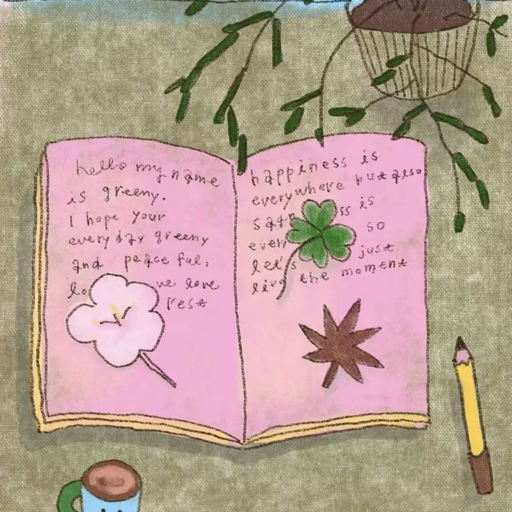 hello my name
is greeny.
I hope your
every day greeny
and peaceful,
we love
rest
happiness is
everywhere but also
is
so
let's just
live the moment